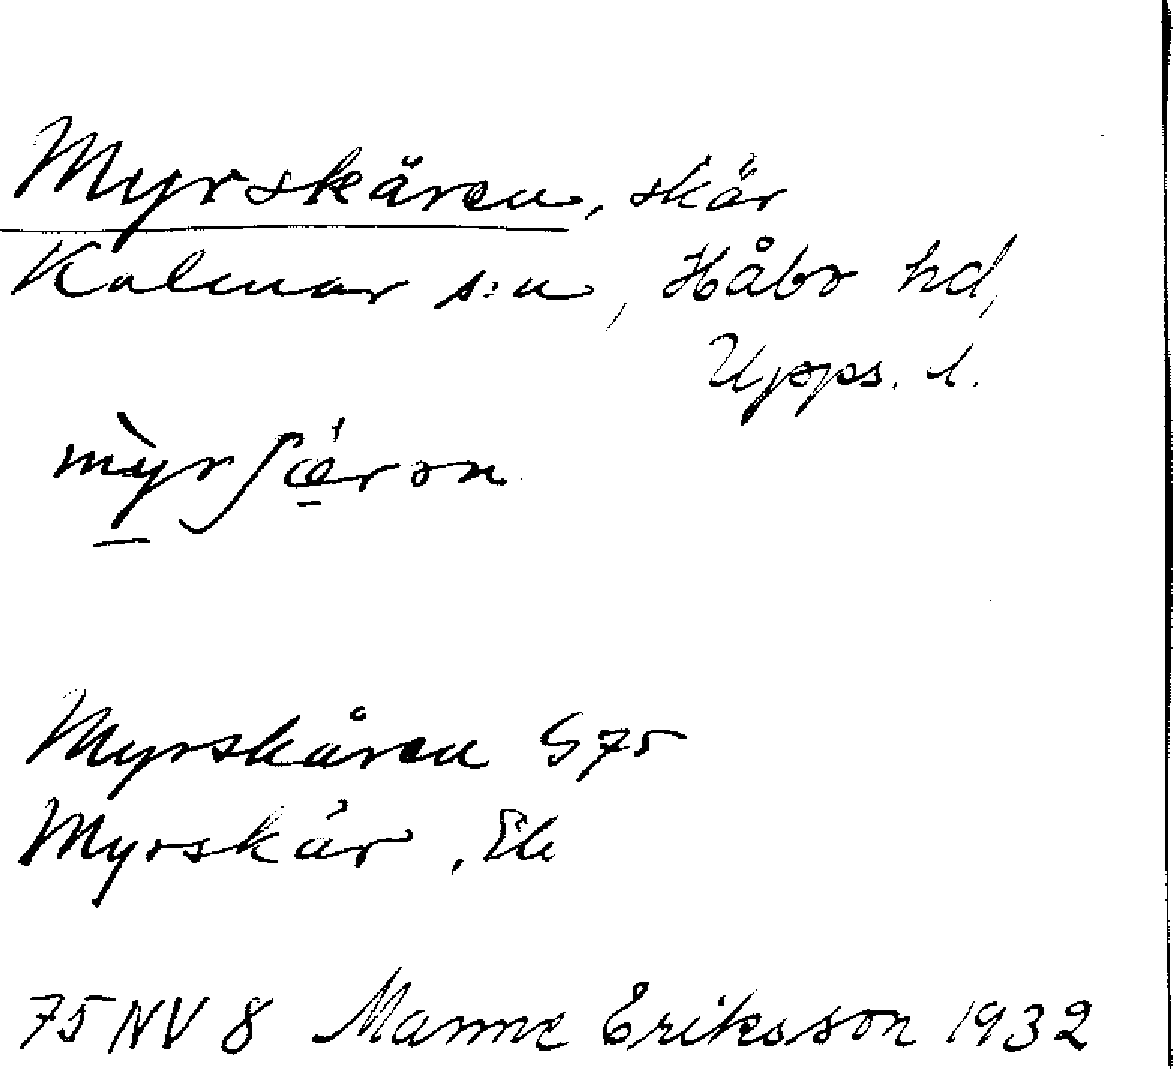 Myrskären, skär
Kalmar s:n, Håbo hd,
Upps. l.
mỳrʃǽron
Myrskåren G75
Myrskär, Ek
75 NV 8 Manne Eriksson 1932